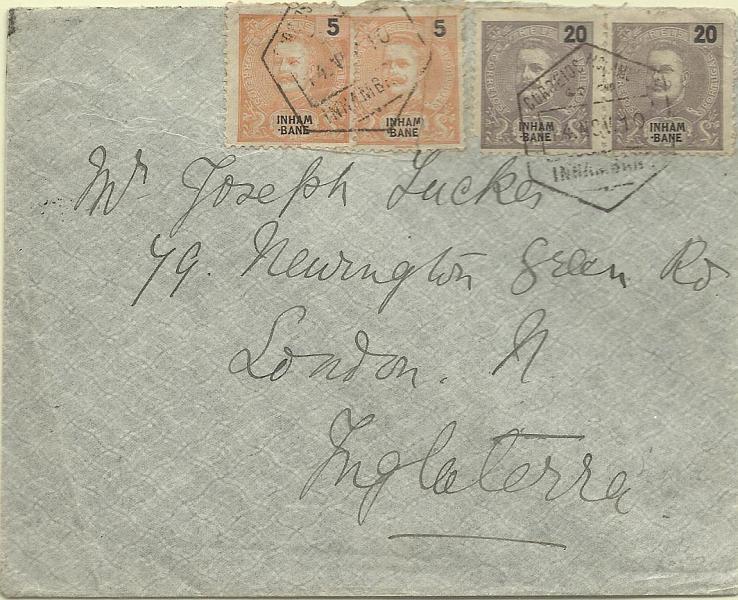 5 5 20 20
INHAM
-BANE
INHAM
-BANE
INHAM
-BANE
INHAM
-BANE
INHAMB
CORREIOS
INHAMBANE
Mr Joseph Tucker
79. Newington Green Rd
London. N.
Inglaterra